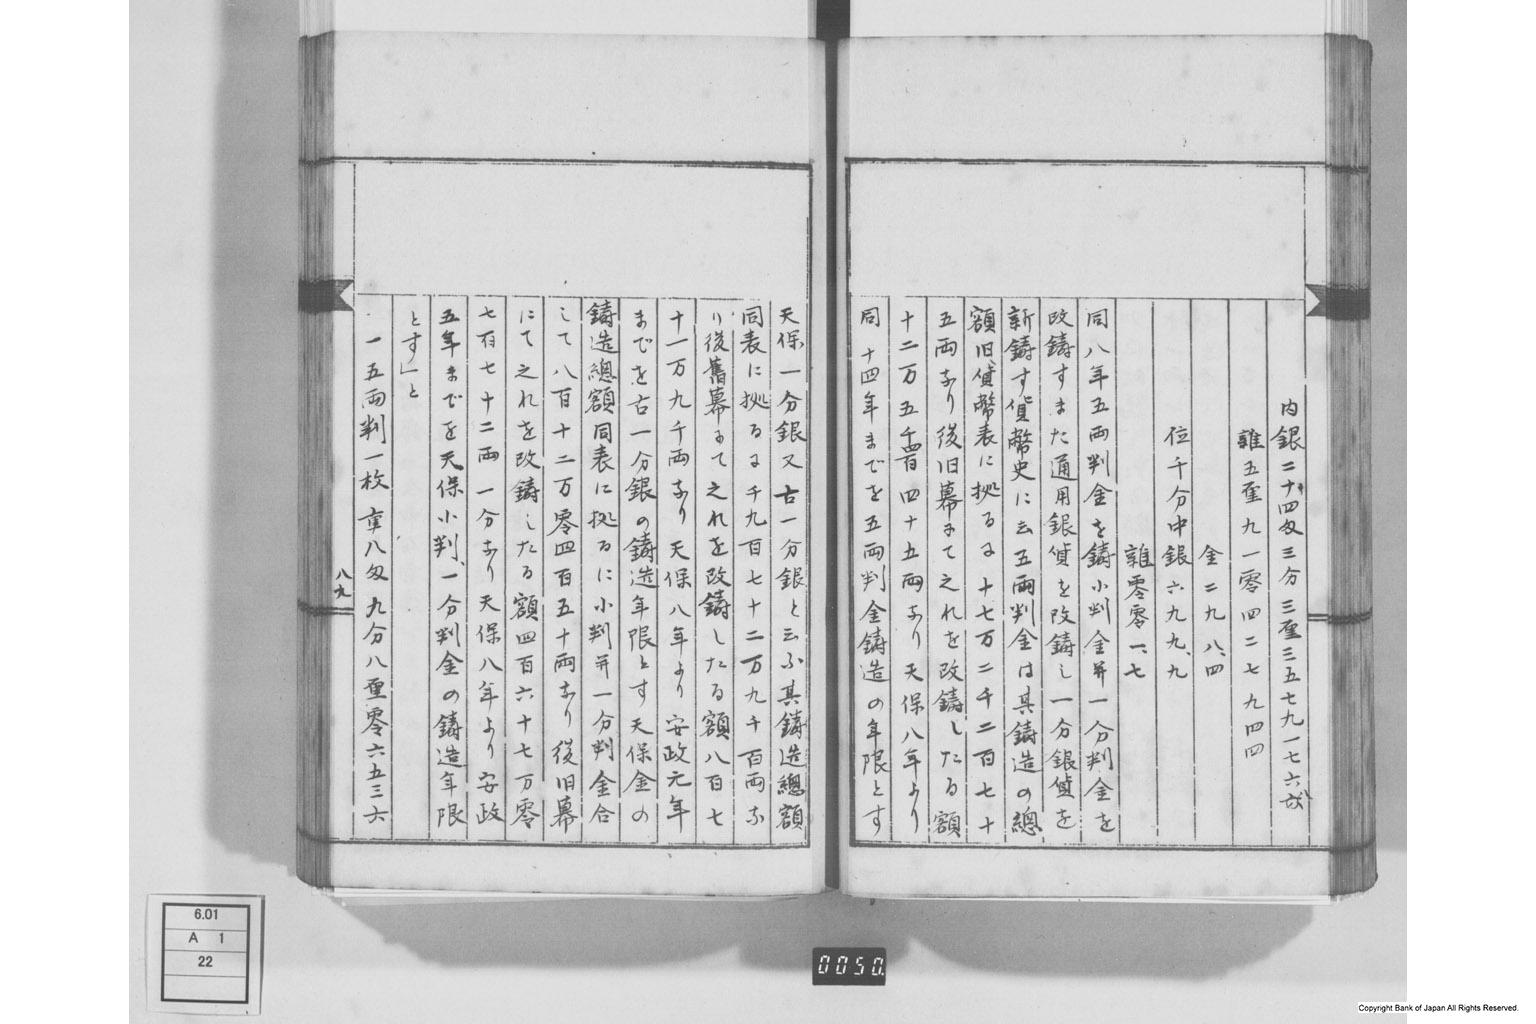 内銀二十四匁三分三厘三五七九一七六弐
雑五厘九一零四二七九四四
金二九、八、四
位千分中銀六九九、九
雑零零一、七
同八年五両判金を鋳小判金并一分判金を
改鋳すまた通用銀貨を改鋳し一分銀貨を
新鋳す貨幣史に云五両判金は其鋳造の総
額旧貨幣表に拠るに十七万二千二百七十
五両なり後旧幕にて之れを改鋳したる額
十二万五千四百四十五両なり天保八年より
同十四年までを五両判金鋳造の年限とす
天保一分銀又古一分銀と云ふ其鋳造總額
同表に拠るに千九百七十二万九千百両な
り後舊幕にて之れを改鋳したる額八百七
十一万九千両なり天保八年より安政元年
までを古一分銀の鋳造年限とす天保金の
鋳造總額同表に拠るに小判并一分判金合
して八百十二万零四百五十両なり後旧幕
にて之れを改鋳したる額四百六十七万零
七百七十二両一分なり天保八年より安政
五年までを天保小判、一分判金の鋳造年限
とす」と
一五両判一枚 重八匁九分八厘零六五三六
八九
6.01
A 1
22
0050
Copyright Bank of Japan All Rights Reserved.